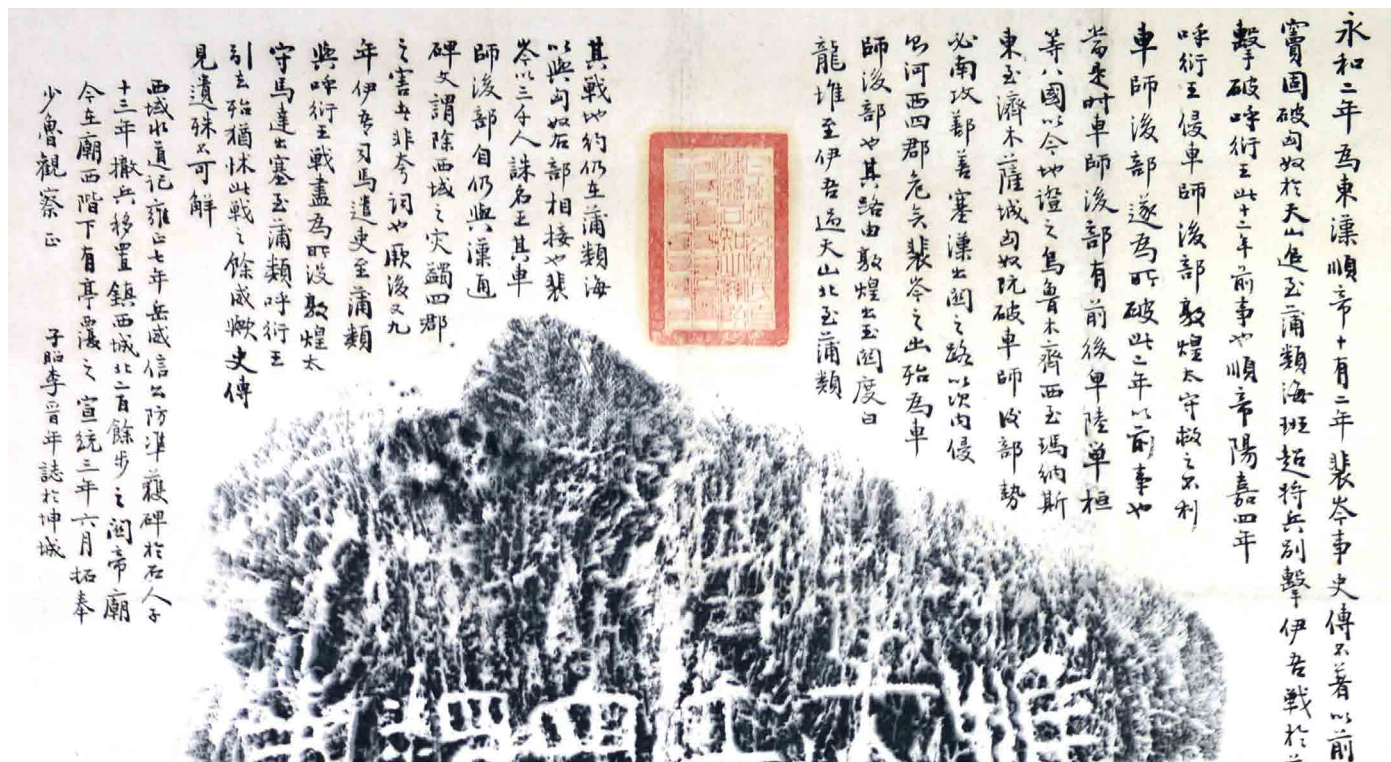 永和二年為東漢順帝十有二年裴岑事史傳不著以前
竇固破匈奴於天山追至蒲類海班超將兵別擊伊吾戰於
擊破呼衍王此十二年前事也順帝陽嘉四年
呼衍王侵車師後部敦煌太守救之不利
車師後部遂為所破此二年以前事也
當是時車師後部有前後卑陸單桓
等八國以今地證之烏魯木齊西至瑪納斯
東至濟木薩城匈奴既破車師後部勢
必南攻鄯善塞漢出關之路以次內侵
則河西四郡危矣裴岑之出殆為車
師後部也其路由敦煌出玉關度白
龍堆至伊吾逾天山北至蒲類
其戰地約仍在蒲類海
以與匈奴右部相接也裴
岑以三千人誅名王其車
師後部自仍與漢通
碑文謂除西域之灾蠲四郡
之害者非夸詞也厥後又九
年伊吾司馬遣吏至蒲類
與呼衍王戰盡為所沒敦煌太
守馬達出塞至蒲類呼衍王
引去殆猶怵此戰之餘威歟史傳
見遺殊不可解
西域水道記雍正七年岳威信公防準獲碑於石人子
十三年撤兵移置鎮西城北二百餘步之關帝廟
今在廟西階下有亭覆之宣統三年六月拓奉
少魯觀察正
子昭李晉年誌於坤城